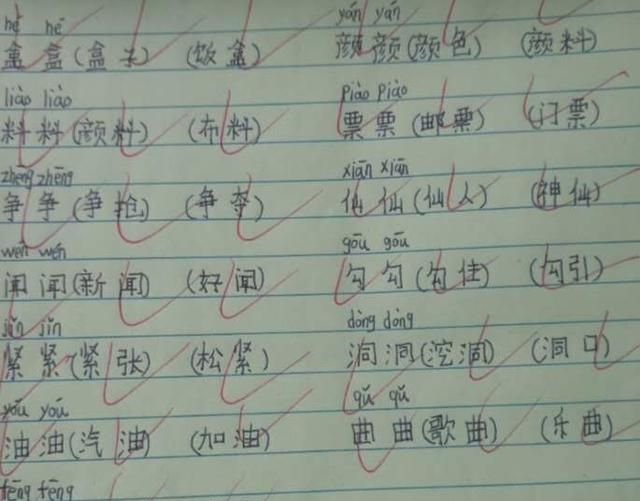 hé hé yán yán
盒 盒 (盒子) (饭盒) 颜 颜 (颜色) (颜料)
liào liào piào piào
料 料 (颜料) (布料) 票 票 (邮票) (门票)
zhēng zhēng xiān xiān
争 争 (争抢) (争夺) 仙 仙 (仙人) (神仙)
wén wén gōu gōu
闻 闻 (新闻) (好闻) 勾 勾 (勾住) (勾引)
jǐn jǐn dòng dòng
紧 紧 (紧张) (松紧) 洞 洞 (挖洞) (洞口)
yóu yóu qǔ qǔ
油 油 (汽油) (加油) 曲 曲 (歌曲) (乐曲)